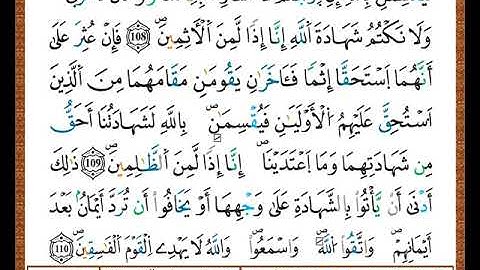 وَلَا نَكْتُمُ شَهَٰدَةَ اَ۬للَّهِ إِنَّا إِذاٗ لَّمِنَ اَ۬لْأٓثِمِينَۖ 108 فَإِنْ عُثِرَ عَلَىٰ
أَنَّهُمَا اَ۪سْتَحَقَّا إِثْماٗ فَـَٔاخَرَٰنِ يَقُومَٰنِ مَقَامَهُمَا مِنَ اَ۬لذِينَ
اَ۟سْتُحِقَّ عَلَيْهِمُ اُ۬لْأَوْلَيَٰنِ فَيُقْسِمَٰنِۖ بِاللَّهِ لَشَهَٰدَتُنَا أَحَقُّ
مِن شَهَٰدَتِهِمَا وَمَا اَ۪عْتَدَيْنَاۖ إِنَّا إِذاٗ لَّمِنَ اَ۬لظَّٰلِمِينَۖ 109 ذَٰلِكَ
أَدْنَىٰ أَنْ يَّأْتُوا بِالشَّهَٰدَةِ عَلَىٰ وَجْهِهَا أَوْ يَخَافُوا أَن تُرَدَّ أَيْمَٰنُۢ بَعْدَ
أَيْمَٰنِهِمْۖ وَاتَّقُوا اُ۬للَّهَۖ وَاسْمَعُواۖ وَاللَّهُ لَا يَهْدِے اِ۬لْقَوْمَ اَ۬لْفَٰسِقِينَۖ 110